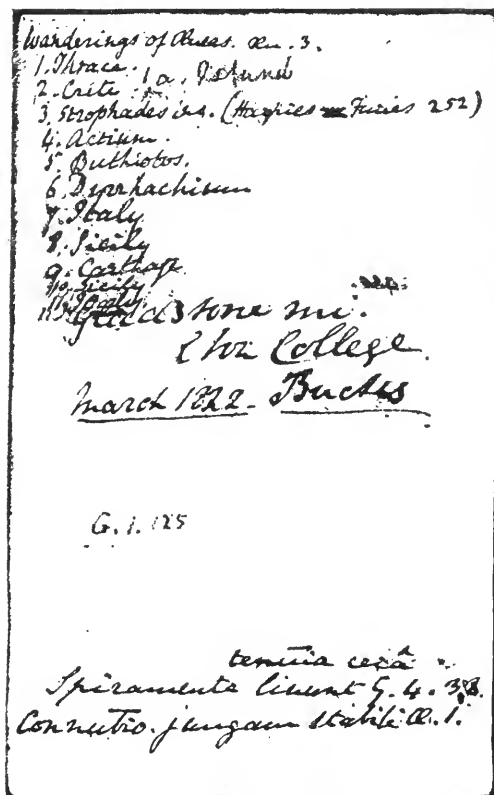 Wanderings of Æneas. Æn. 3.
1. Thrace.
1a. Delund
2. Crete
3. Strophades ins. (Harpies Furies 252)
4. Actium.
5. Buthrotos.
6. Dyrrhachium
7. Italy
8. Sicily
9. Carthage
10. Sicily
11. Italy
Gladstone mi.
Eton College.
March 1822. Bucks
G. 1. 125
tenuia cerâ
Spiramenta linunt G. 4. 38.
Connubio jungam stabili Æ. 1.